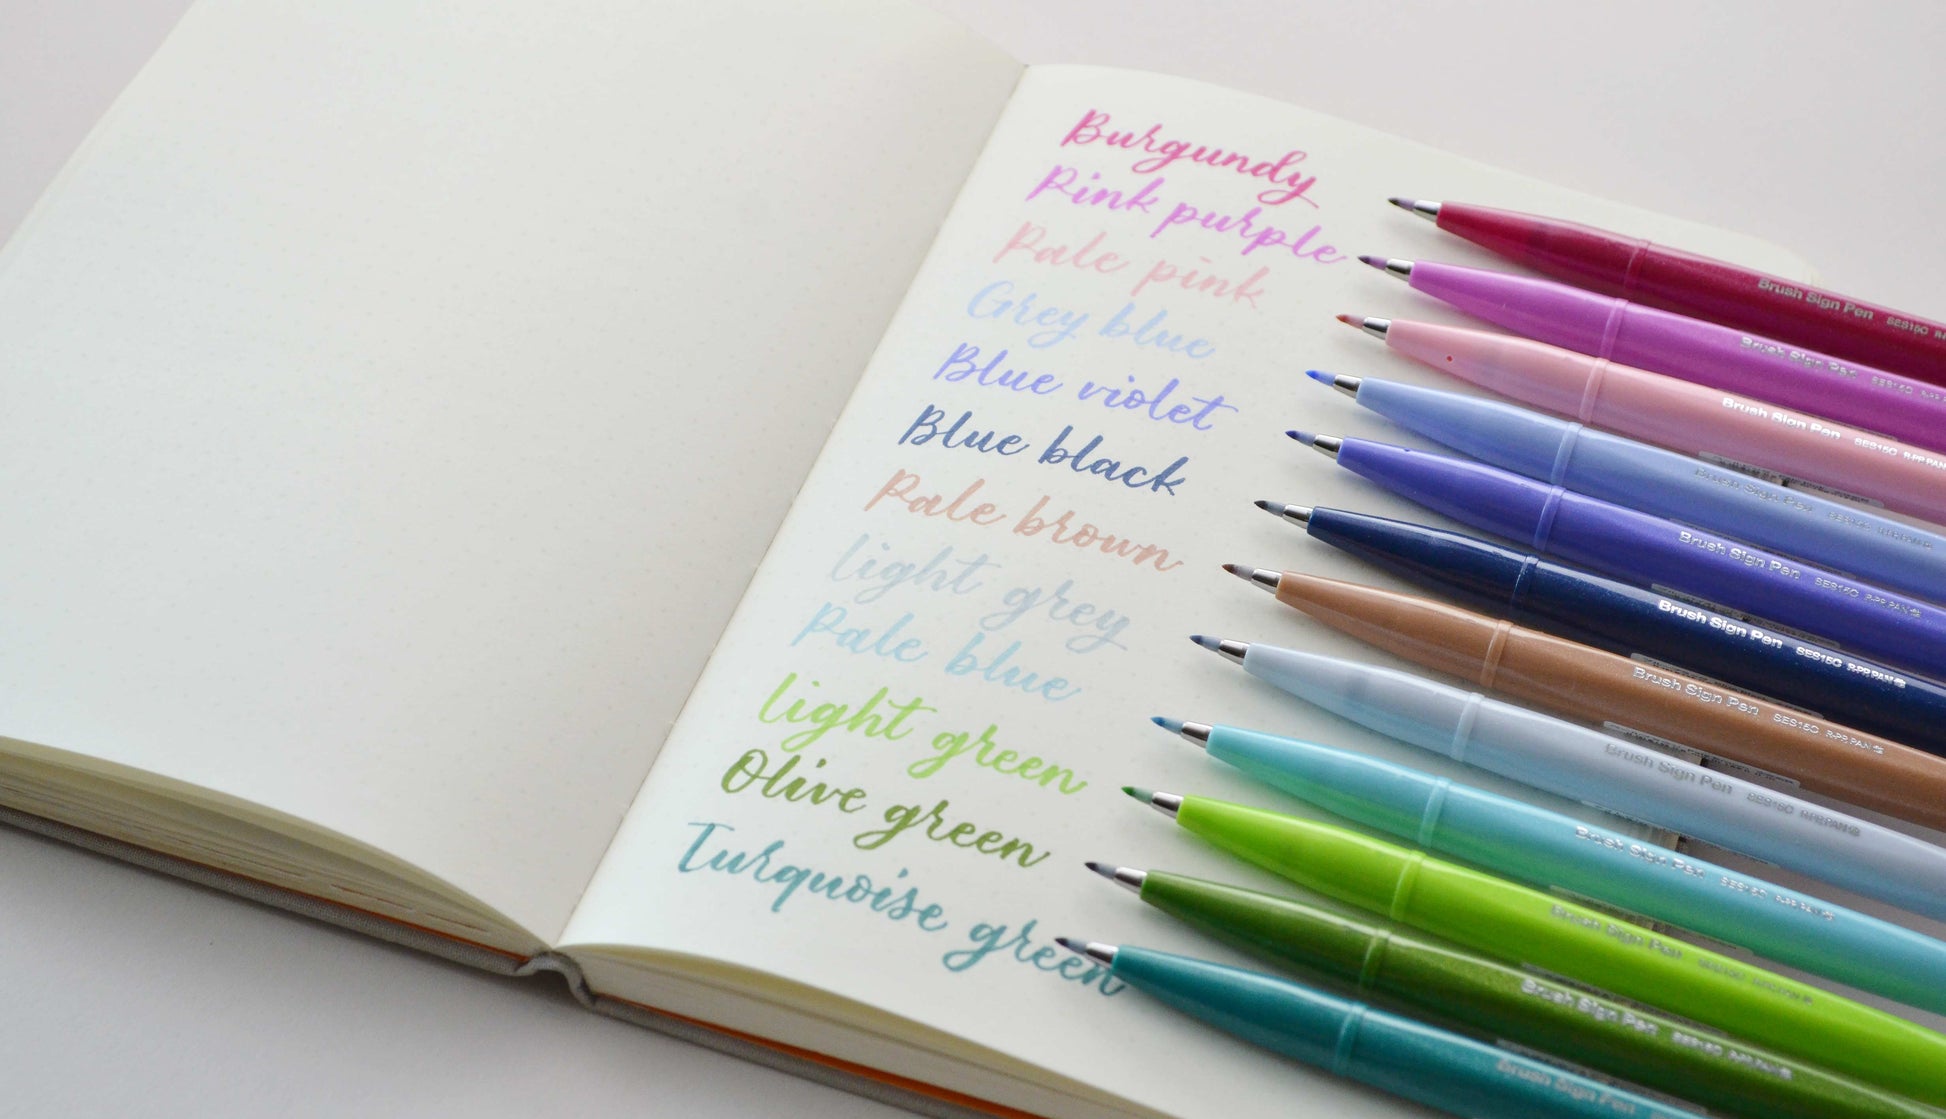 Burgundy
Pink purple
Pale pink
Grey blue
Blue violet
Blue black
Pale brown
Light grey
Pale blue
Light green
Olive green
Turquoise green
Brush Sign Pen SES15C
Brush Sign Pen SES15C
Brush Sign Pen SES15C R-PP, PAN
Brush Sign Pen SES15C
Brush Sign Pen SES15C R-PP, PAN
Brush Sign Pen SES15C R-PP, PAN
Brush Sign Pen SES15C R-PP, PAN
Brush Sign Pen SES15C R-PP, PAN
Brush Sign Pen SES15C R-PP, PAN
Brush Sign Pen SES15C
Brush Sign Pen SES15C R-PP, PAN
Brush Sign Pen